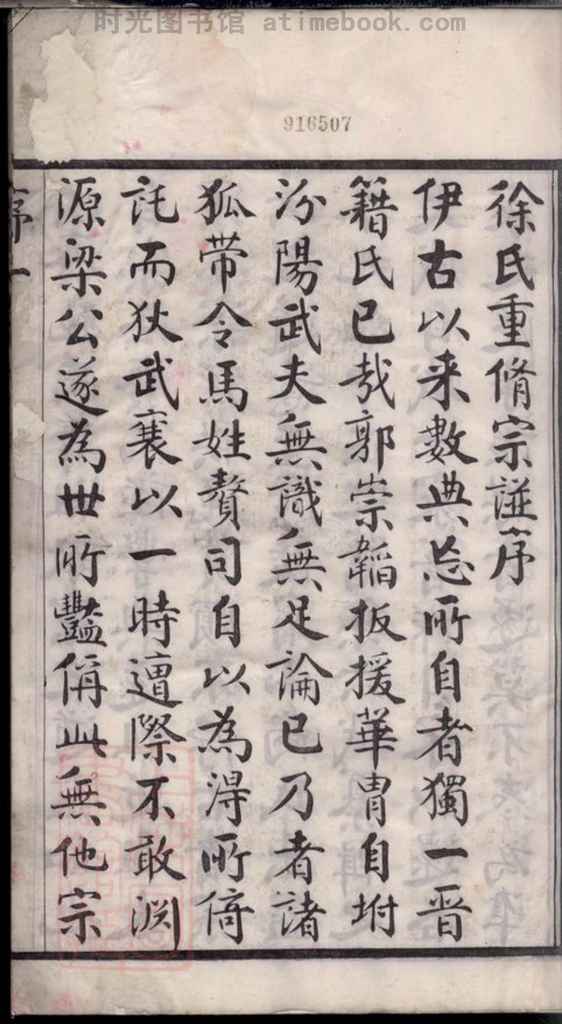 时光图书馆 atimebook.com
916507
徐氏重脩宗譜序
伊古以来數典忘所自者獨一晋
籍氏已㢤郭崇韜扳援華冑自坿
汾陽武夫無識無足論已乃者諸
狐帶令馬姓贅司自以為淂所倚
託而狄武襄以一時遭際不敢淵
源梁公遂為丗所豔偁此無他宗
序 一